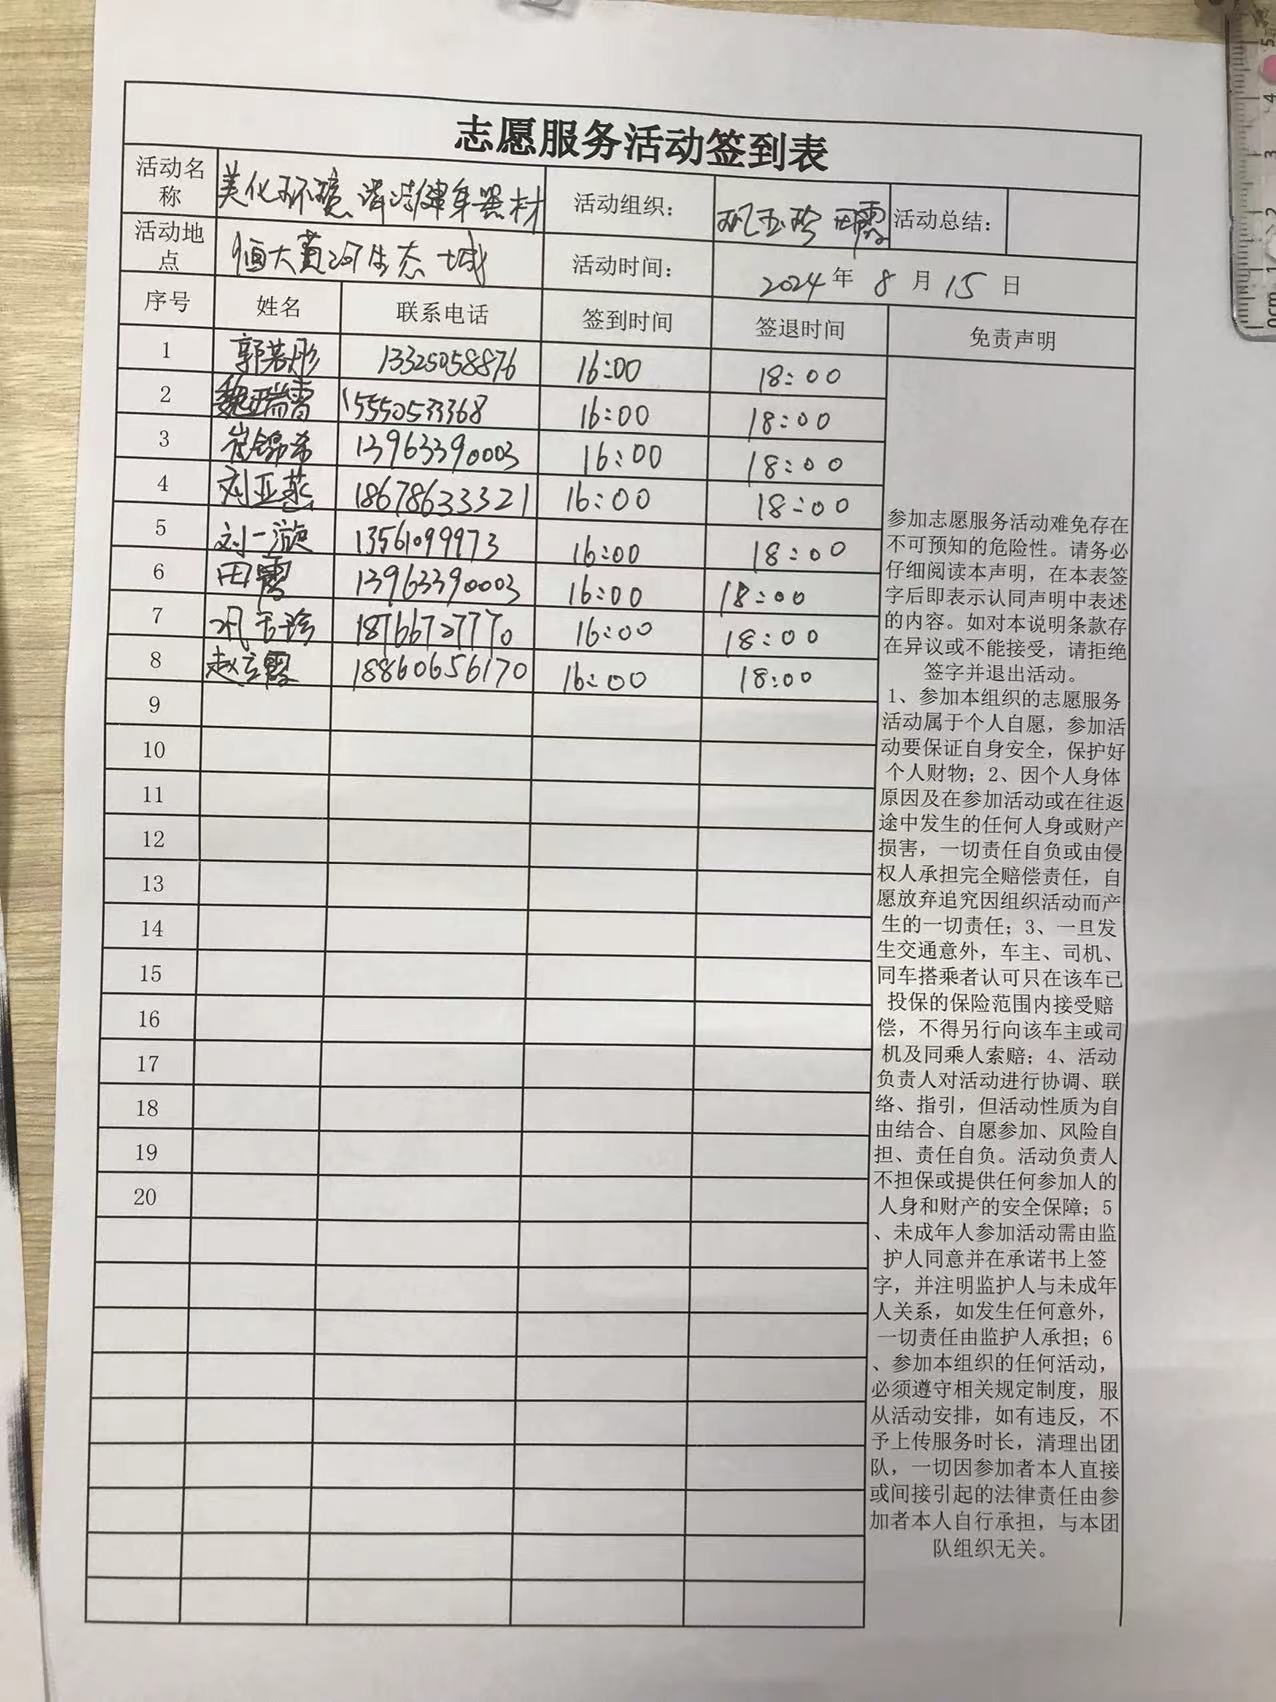 志愿服务活动签到表
活动名称 美化环境 清洁健身器材 活动组织： 巩玉珍 田霞 活动总结：
活动地点 恒大黄河生态城 活动时间： 2024年8月15日
序号 姓名 联系电话 签到时间 签退时间 免责声明
1 郭若彤 13325058876 16:00 18:00
2 魏瑞雪 15550533368 16:00 18:00
3 崔锦希 13963390003 16:00 18:00
4 刘亚燕 18678633321 16:00 18:00
5 刘一漩 13561099973 16:00 18:00
6 田霞 13963390003 16:00 18:00
7 巩玉珍 18766727770 16:00 18:00
8 赵立霞 18860656170 16:00 18:00
9
10
11
12
13
14
15
16
17
18
19
20
参加志愿服务活动难免存在
不可预知的危险性。请务必
仔细阅读本声明，在本表签
字后即表示认同声明中表述
的内容。如对本说明条款存
在异议或不能接受，请拒绝
签字并退出活动。
1、参加本组织的志愿服务
活动属于个人自愿，参加活
动要保证自身安全，保护好
个人财物；2、因个人身体
原因及在参加活动或在往返
途中发生的任何人身或财产
损害，一切责任自负或由侵
权人承担完全赔偿责任，自
愿放弃追究因组织活动而产
生的一切责任；3、一旦发
生交通意外，车主、司机、
同车搭乘者认可只在该车已
投保的保险范围内接受赔
偿，不得另行向该车主或司
机及同乘人索赔；4、活动
负责人对活动进行协调、联
络、指引，但活动性质为自
由结合、自愿参加、风险自
担、责任自负。活动负责人
不担保或提供任何参加人的
人身和财产的安全保障；5
、未成年人参加活动需由监
护人同意并在承诺书上签
字，并注明监护人与未成年
人关系，如发生任何意外，
一切责任由监护人承担；6
、参加本组织的任何活动，
必须遵守相关规定制度，服
从活动安排，如有违反，不
予上传服务时长，清理出团
队，一切因参加者本人直接
或间接引起的法律责任由参
加者本人自行承担，与本团
队组织无关。